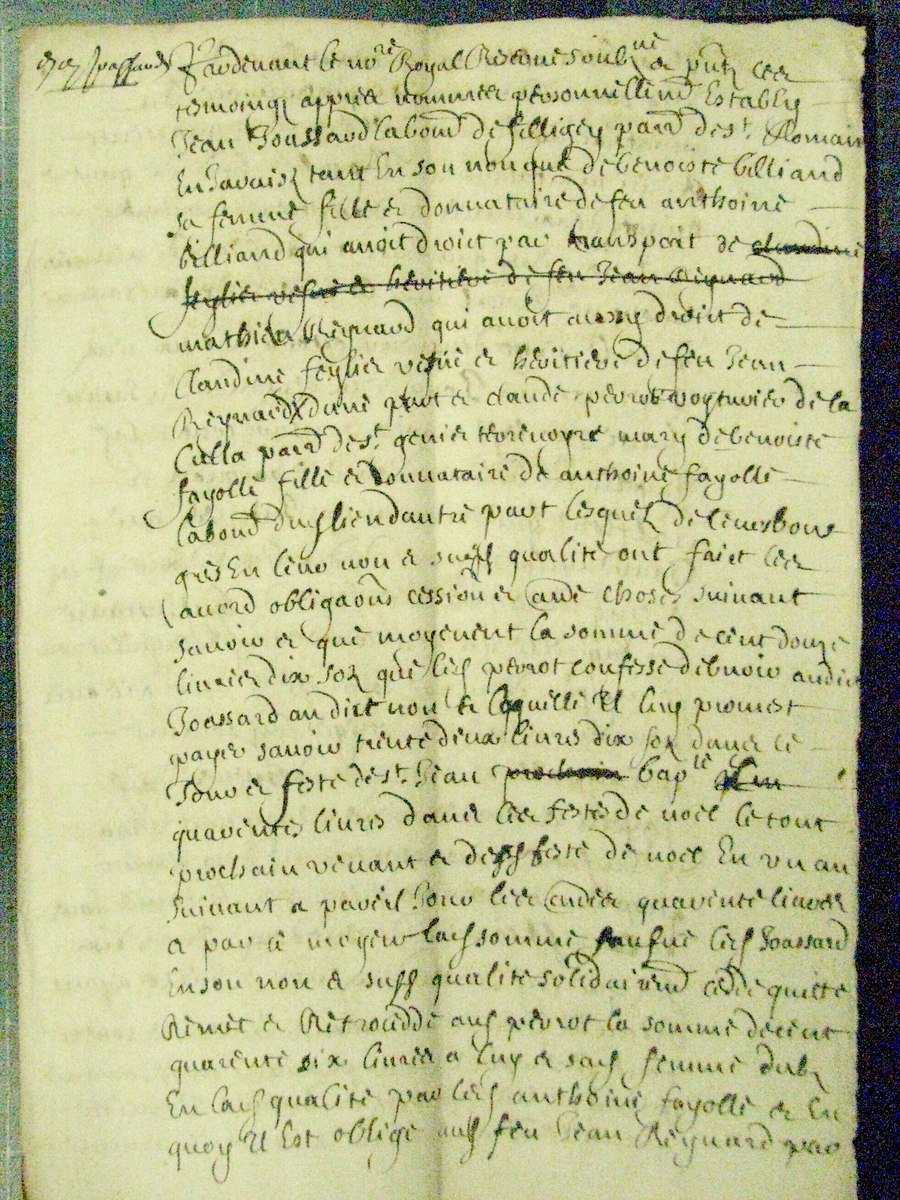 Pardevant le no.re Royal Reservé soub.né et pntz les
tesmoingz appres nommes personnellemt Estably
Jean Joassard labour de filligey parr de st. Romain
En Javaisz tant En son non que de benoiste billiand
sa femme fille et donnataire de feu anthoine
billiand qui avoit droict par transport de claudine
feylier vefve et héritiere de feu Jean Reynard
mathieu Reynard qui avoit droict de
Claudine feylier vefve et heritiere de feu Jean
Reynard dune part et claude perrot voyturier de la
Culla parr de st. genis terrenoyre mary de benoiste
fayolle fille et donnataire de anthoine fayolle
labour dudslieu dautre part Lesquelz de leurs bons
gres En leur non et susds qualite ont faict les
acord obligaons cession et choses suivant
savoir est que moyenent la somme de cent douze
livres dix solz que leds perrot confesse debvoir audict
Joassard audict non et laquelle Il luy promest
payer savoir trente deux livres dix solz dans le
Jour et feste de st. Jean prochain bap.te
quarentes livres dans les festes de noel le tout
prochain venant et desds feste de noel En un an
suivant a pareil Jour les quarente livres
et par ce moyen lads somme leds Joassard
En son non et susds qualite solidairemt cede quitte
Remet et Retrocedde auds perrot la somme de cent
quarente six livres a luy et sads femme dubz
En lads qualite par leds anthoine fayolle et En
quoy Il Est oblige auds feu Jean Reynard par